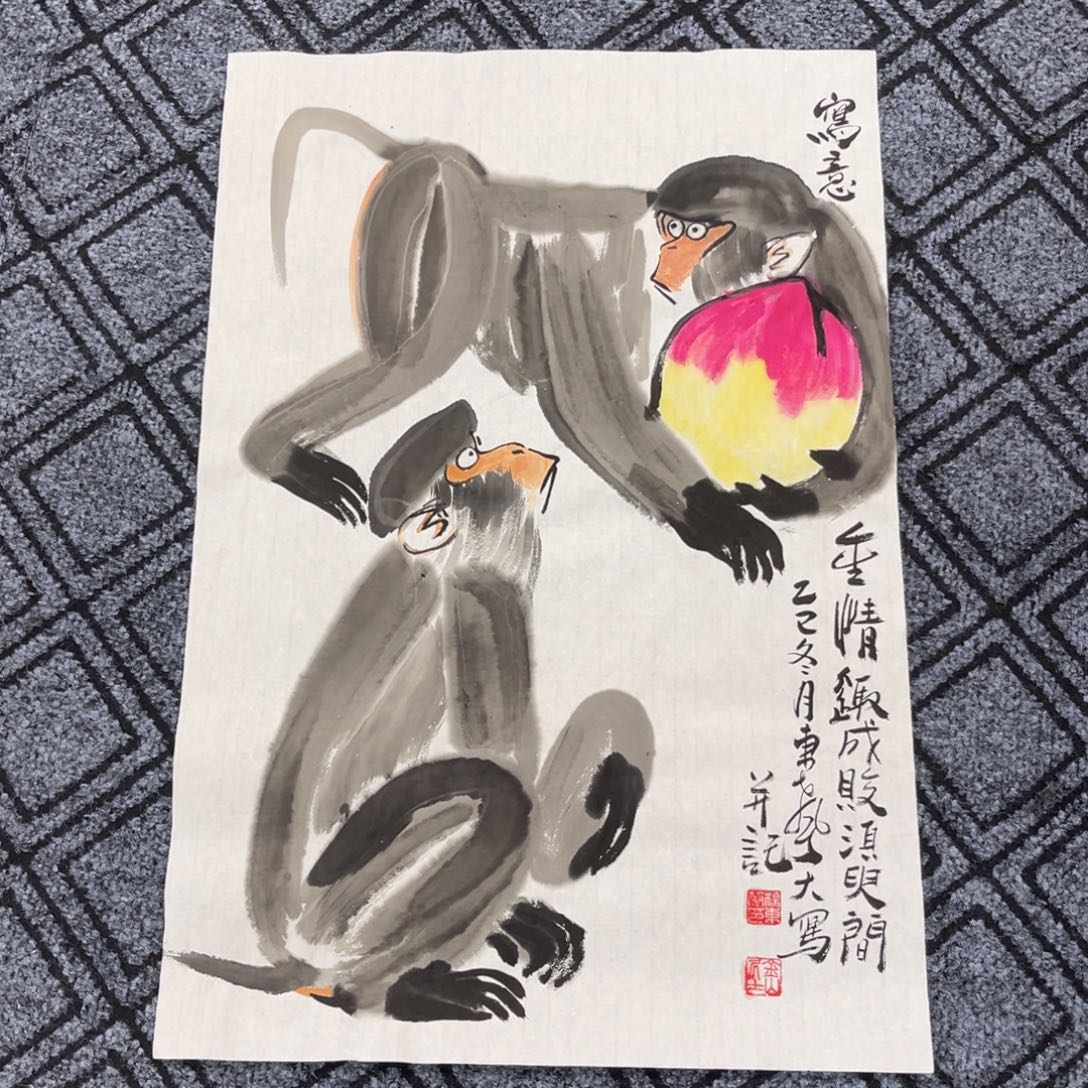 寫意
重情趣成敗須臾間
乙巳冬月東 藝大寫
并記